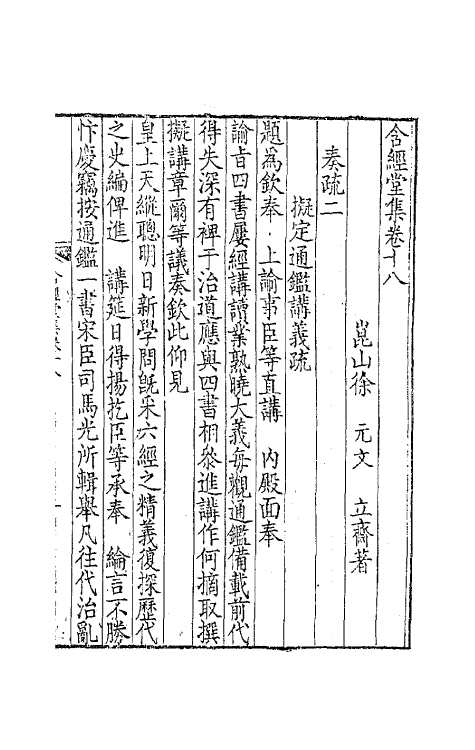 含經堂集卷十八
崑山徐 元文 立齋著
奏疏二
擬定通鑑講義疏
題爲欽奉 上諭事臣等直講 內殿面奉
諭旨四書屢經講讀業熟曉大義每觀通鑑備載前代
得失深有裨于治道應與四書相叅進講作何摘取撰
擬講章爾等議奏欽此仰見
皇上天縱聰明日新學問旣采六經之精義復探歷代
之史編俾進 講筵日得揚扢臣等承奉 綸言不勝
忭慶竊按通鑑一書宋臣司馬光所輯舉凡往代治亂